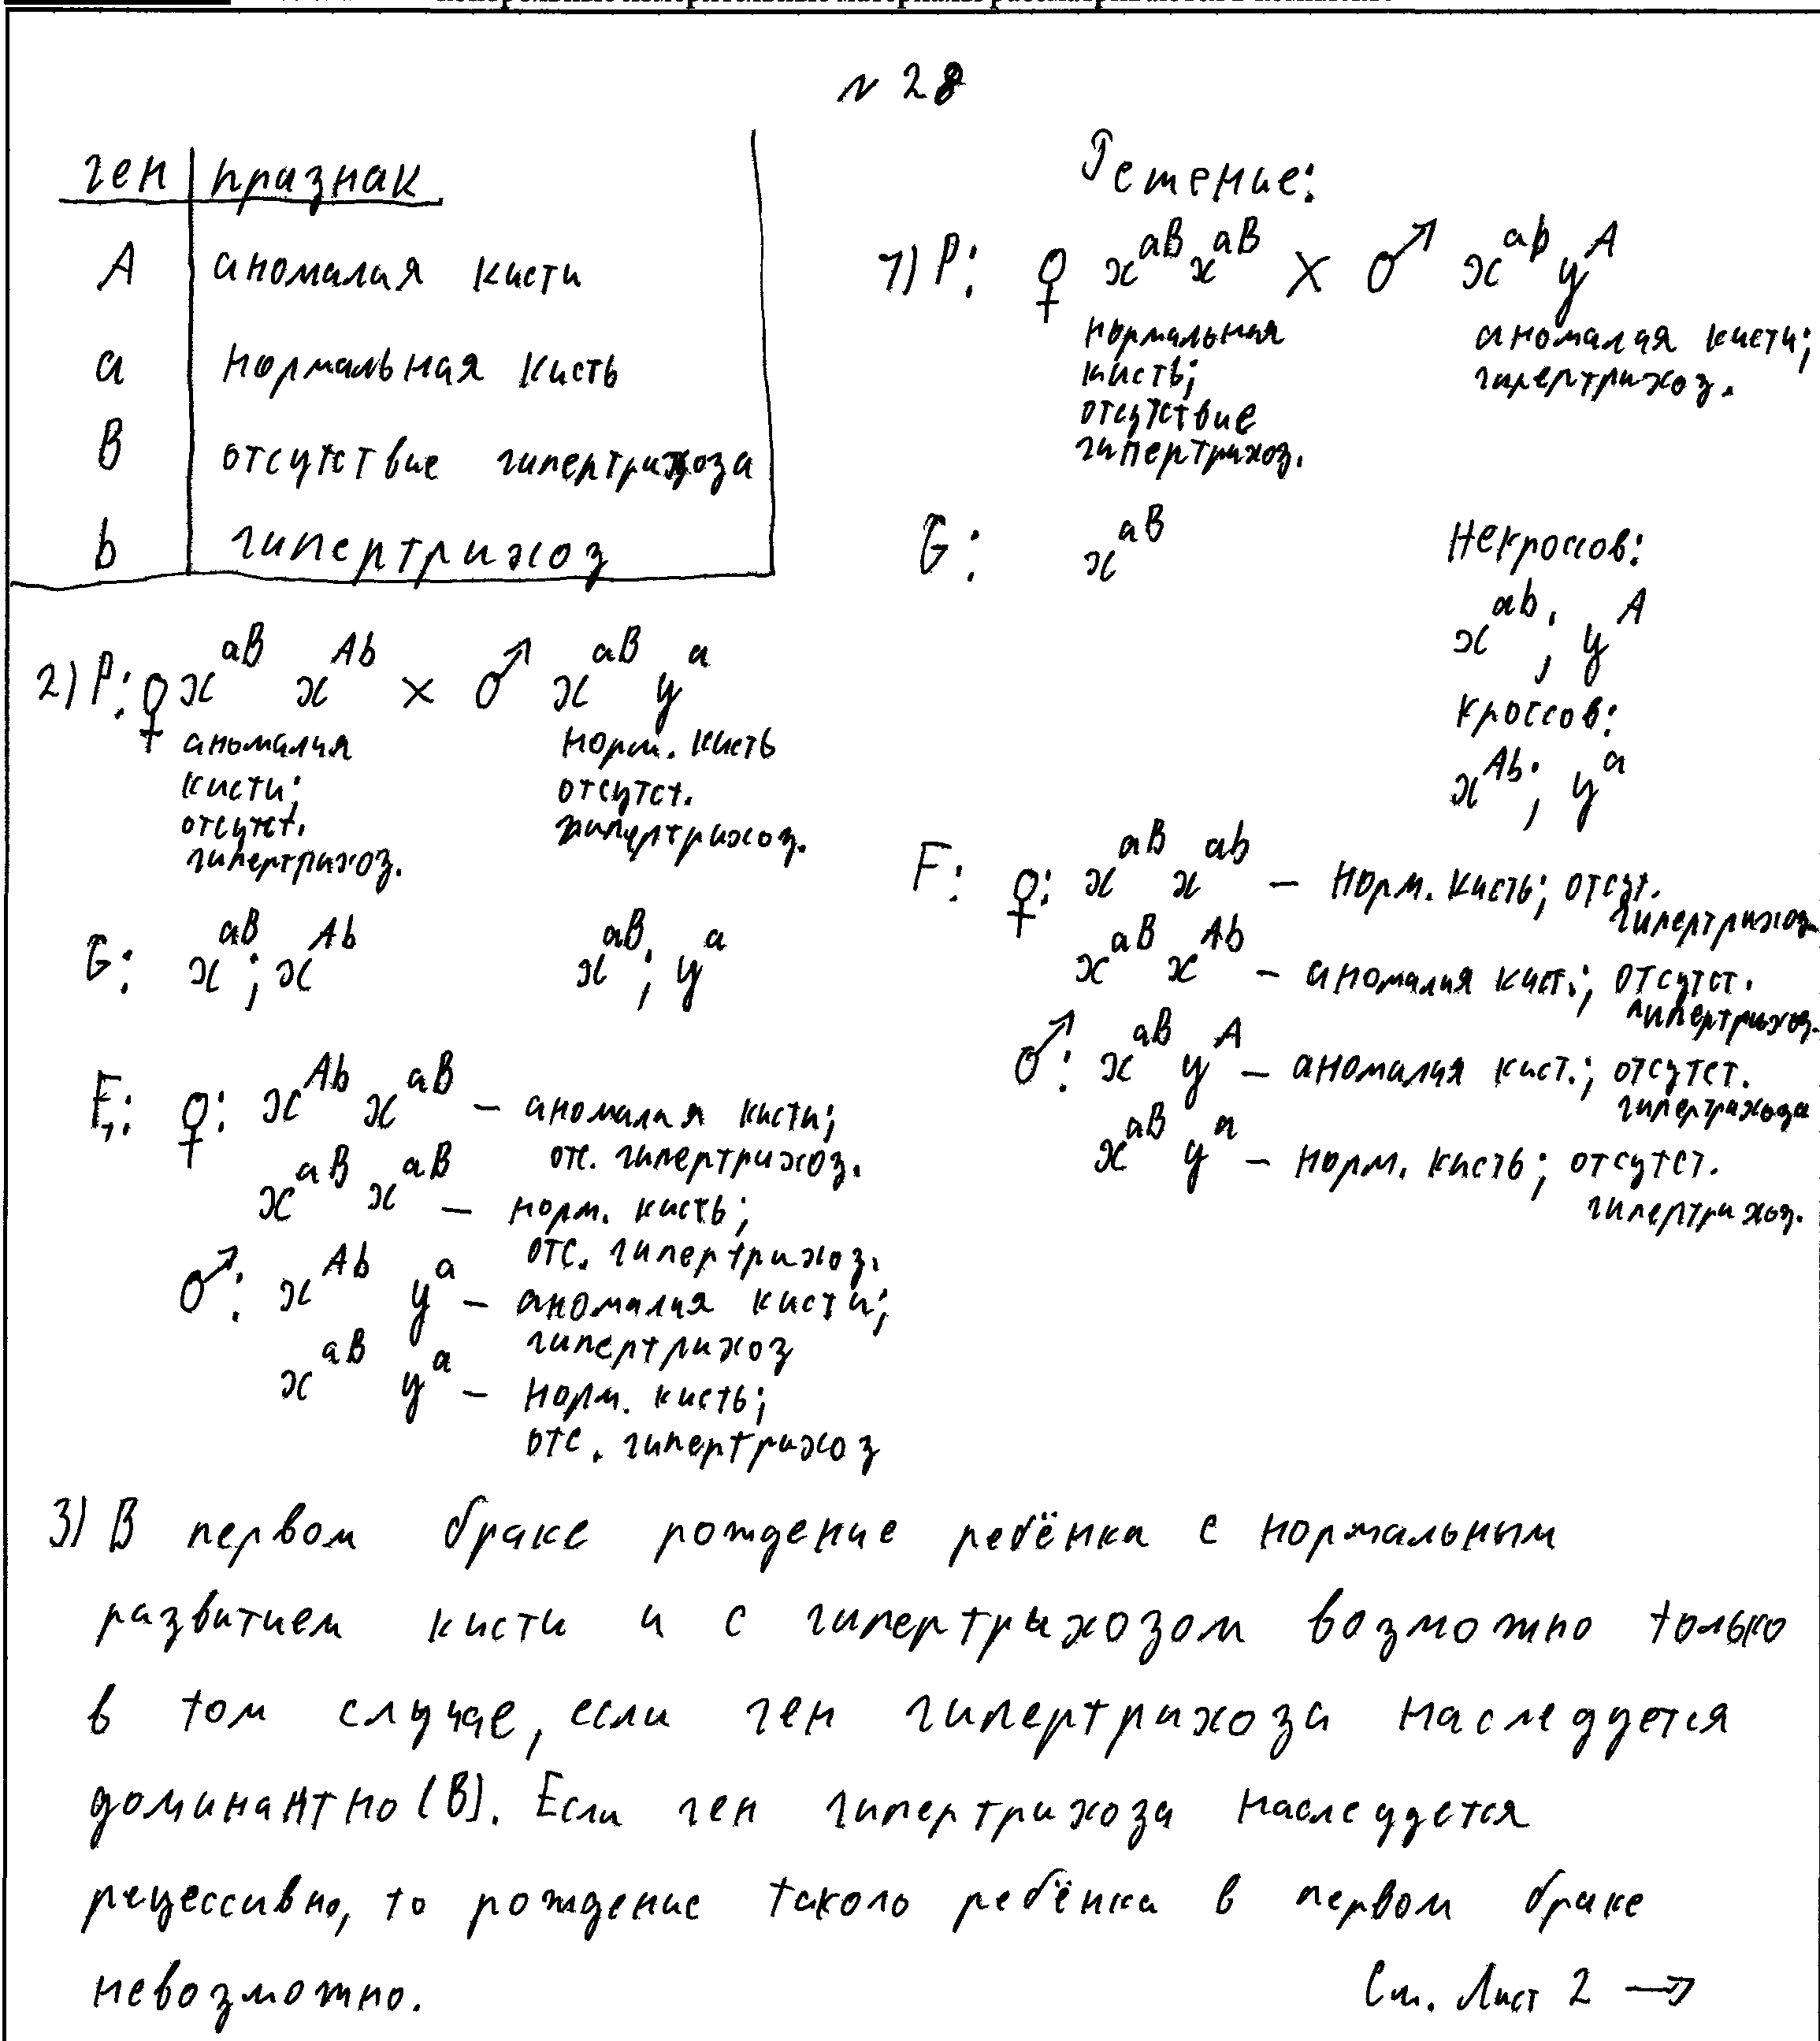 № 28
ген | признак
A | аномалая кисти
a | нормальная кисть
B | отсутствие гипертрихоза
b | гипертрихоз
Решение:
1) P: ♀ x^aB x^aB × ♂ x^ab y^A
нормальная
кисть;
отсутствие
гипертрихоз.
аномалая кисти;
гипертрихоз.
G: x^aB
Некроссов:
x^ab; y^A
Кроссов:
x^Ab; y^a
F: ♀: x^aB x^ab – норм. кисть; отсут.
гипертрихоз
x^aB x^Ab – аномалия кист.; отсутст.
гипертрихоз.
♂: x^aB y^A – аномалия кист.; отсутст.
гипертрихоза
x^aB y^a – норм. кисть; отсутст.
гипертрихоз.
2) P: ♀ x^aB x^Ab × ♂ x^aB y^a
аномалия
кисти;
отсутст.
гипертрихоз.
норм. кисть
отсутст.
гипертрихоз.
G: x^aB; x^Ab x^aB; y^a
F1: ♀: x^Ab x^aB – аномалая кисти;
отс. гипертрихоз.
x^aB x^aB – норм. кисть;
отс. гипертрихоз.
♂: x^Ab y^a – аномалия кисти;
гипертрихоз
x^aB y^a – норм. кисть;
отс. гипертрихоз
3) В первом браке рождение ребёнка с нормальным
развитием кисти и с гипертрихозом возможно только
в том случае, если ген гипертрихоза наследуется
доминантно (B). Если ген гипертрихоза наследуется
рецессивно, то рождение такого ребёнка в первом браке
невозможно.
См. Лист 2 →